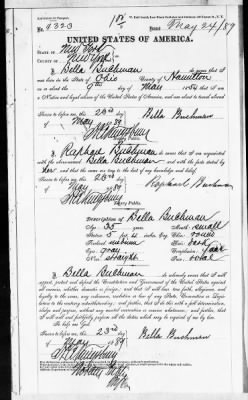 No. 9323
Issued May 24/89
UNITED STATES OF AMERICA.
STATE OF New York
COUNTY OF New York
I, Bella Buchman do swear that I
was born in the State of Ohio County of Hamilton
on or about the 9th day of May 1854 that I am
a Native and loyal citizen of the United States of America, and am about to travel abroad
Sworn to before me, this 23rd
day of May 1889
Bella Buchman
Notary Public.
I, Raphael Buchman do swear that I am acquainted
with the above-named Bella Buchman and with the facts stated by
her and that the same are true to the best of my knowledge and belief.
Sworn to before me, this 23rd
day of May 1889
Raphael Buchman
Notary Public
Description of Bella Buchman
Age: 35 years
Mouth: small
Stature: 5 feet
Chin: round
Forehead: medium
Hair: dark
Eyes: gray
Complexion: dark
Nose: straight
Face: oval
I, Bella Buchman do solemnly swear that I will
support, protect and defend the Constitution and Government of the United States against
all enemies, whether domestic or foreign, and that I will bear true faith, allegiance and
loyalty to the same, any ordinance, resolution or law of any State, Convention or Legis-
lature to the contrary notwithstanding; and further, that I do this with a full determination,
pledge and purpose, without any mental reservation or evasion whatsoever, and further, that
I will well and faithfully perform all the duties which may be required of me by law.
So help me God.
Sworn to before me, this 23rd
day of May 1889
Bella Buchman
Notary Public